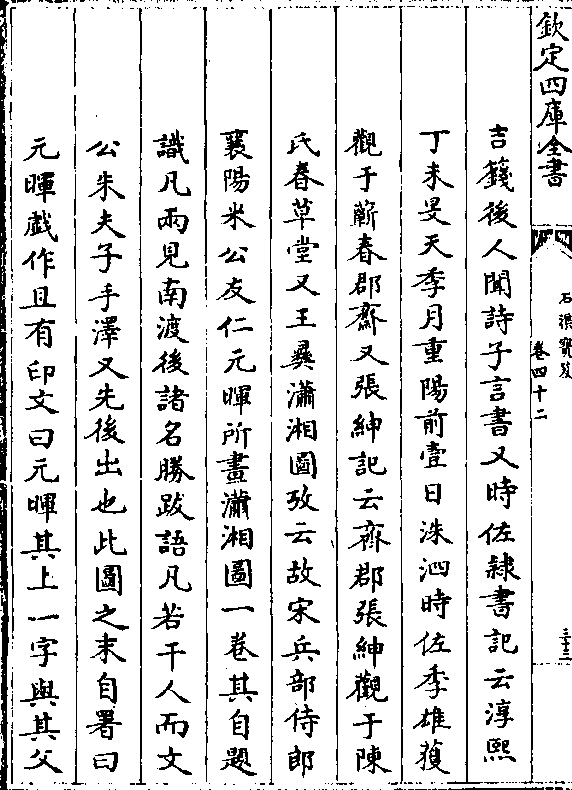 欽定四庫全書
石渠寳笈
卷四十二
三十三
吉籛後人聞詩子言書又時佐隸書記云淳熙
丁未旻天季月重陽前壹日洙泗時佐季雄獲
觀于蘄春郡齋又張紳記云齊郡張紳觀于陳
氏春草堂又王彞瀟湘圖攷云故宋兵部侍郎
襄陽米公友仁元暉所畫瀟湘圖一卷其自題
識凡兩見南渡後諸名勝跋語凡若干人而文
公朱夫子手澤又先後出也此圖之末自署曰
元暉戲作且有印文曰元暉其上一字與其父